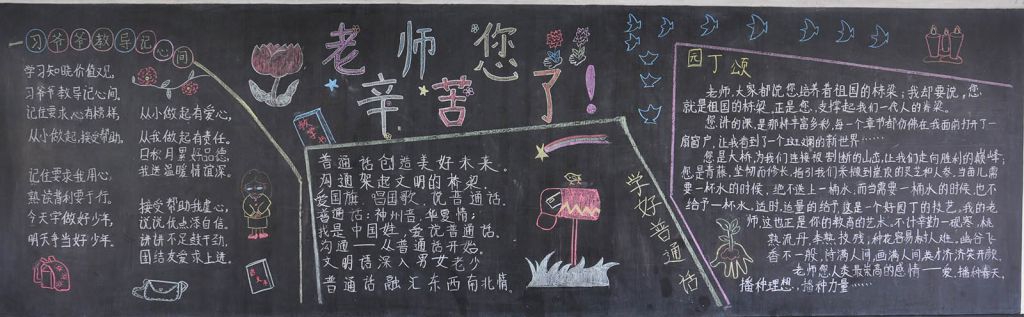 习爷爷教导记心间
学习知晓价值观,
习爷爷教导记心间。
记住要求,心有榜样,
从小做起,接受帮助。
记住要求我用心,
熟读背利要于行。
今天字做好少年,
明天争当好少年。
从小做起有爱心,
从我做起有责任。
日积月累好品德,
我送温暖情谊深。
接受帮助我虚心,
说说优点添自信。
讲讲不足鼓干劲,
团结友爱求上进。
老师您
辛苦了!
普通话创造美好未来。
沟通架起文明的桥梁
爱国旗,唱国歌,说普通话。
普通话:神州音,华夏情;
我是中国娃,爱说普通话。
沟通——从普通话开始。
文明语深入男女老少
普通话融汇东西南北情。
学好普通话
园丁颂
老师,大家都说您培养着祖国的桥梁;我却要说,您
就是祖国的桥梁,正是您,支撑起我们一代人的脊梁。
您讲的课,是那样丰富多彩,每一个章节都仿佛在我面前打开了一
扇窗户,让我看到了一个斑斓的新世界……
您是大桥,为我们连接被割断的山峦,让我们走向胜利的巅峰;
您是青藤,坚韧而修长,指引我们采撷到崖顶的灵芝和人参。当每儿需
要一杯水的时候,绝不送上一桶水,而当需要一桶水的时候,也不
给予一杯水。适时,适量的给予这是一个好园丁的技艺。我的老
师,这也正是你的教育的艺术。不计辛勤一砚寒,桃
熟流丹,李熟枝残,种花容易树人难。幽谷飞
香不一般,诗满人间,画满人间,英才济济笑开颜。
老师您人类最崇高的感情——爱,播种春天,
播种理想,播种力量……